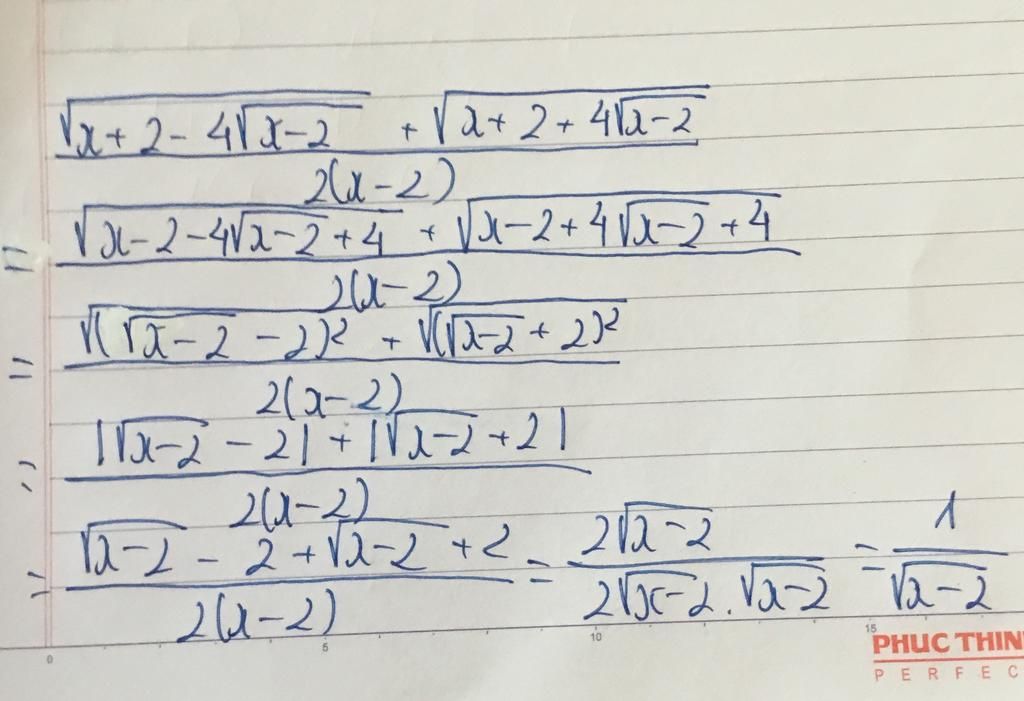 √(x+2-4√(x-2)) + √(x+2+4√(x-2))
2(x-2)
= √(x-2-4√(x-2)+4) + √(x-2+4√(x-2)+4)
2(x-2)
= √((√(x-2) -2)²) + √((√(x-2)+2)²)
2(x-2)
= |√(x-2) -2| + |√(x-2)+2|
2(x-2)
= √(x-2) - 2 + √(x-2) +2 = 2√(x-2) = 1
2(x-2) 2√(x-2) . √(x-2) √(x-2)
0 5 10 15
PHUC THIN
PERFEC